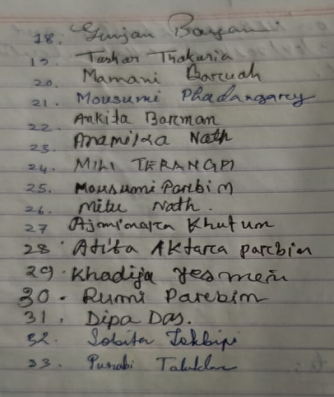 18. Gunjan Bayan
19. Tushar Thakuria
20. Mamani Baruah
21. Mousumi Phadangarey
22. Ankita Barman
23. Anamika Nath
24. MILI TERANGPI
25. Mousumi Parbin
26. Mitu Nath.
27 Khutum
28. Atita AKtara parbin
29. Khadija Yesmein
30. Rumi Parbin
31. Dipa Das.
32.
33. Purabi Talukdar